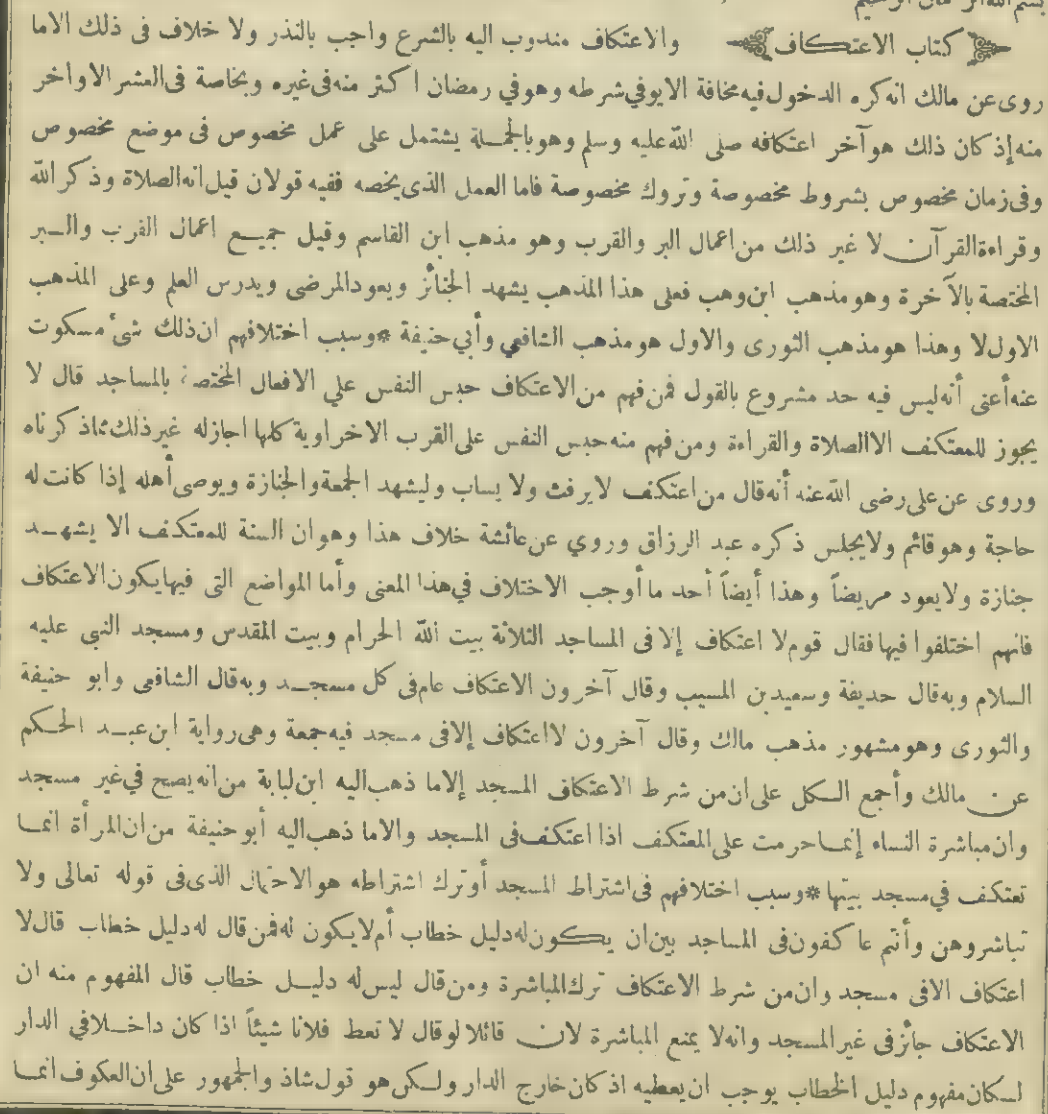 بسم الله الرحمان الرحيم
كتاب الاعتكاف والاعتكاف مندوب اليه بالشرع واجب بالنذر ولا خلاف فى ذلك الاما
روى عن مالك انه كره الدخول فيه مخافة الايوفي شرطه وهو في رمضان اكثر منه فى غيره وبخاصة فى العشر الاواخر
منه إذ كان ذلك هو آخر اعتكافه صلى الله عليه وسلم وهو بالجملة يشتمل على عمل مخصوص فى موضع مخصوص
وفى زمان مخصوص بشروط مخصوصة وتروك مخصوصة فاما العمل الذى يخصه ففيه قولان قيل انه الصلاة وذكر الله
وقراءة القرآن لا غير ذلك من اعمال البر والقرب وهو مذهب ابن القاسم وقيل جميع اعمال القرب والبر
المختصة بالآخرة وهو مذهب ابن وهب فعلى هذا المذهب يشهد الجنائز ويعود المرضى ويدرس العلم وعلى المذهب
الاول لا وهذا هو مذهب الثورى والاول هو مذهب الشافعي وأبي حنيفة *وسبب اختلافهم ان ذلك شئ مسكوت
عنه أعنى أنه ليس فيه حد مشروع بالقول فمن فهم من الاعتكاف حبس النفس علي الافعال المختصة بالمساجد قال لا
يجوز للمعتكف الا الصلاة والقراءة ومن فهم منه حبس النفس على القرب الاخراوية كلها اجازله غير ذلك مماذكرناه
وروى عن على رضى الله عنه أنه قال من اعتكف لايرفث ولا يساب وليشهد الجمعة والجنازة ويوصى أهله إذا كانت له
حاجة وهو قائم ولايجلس ذكره عبد الرزاق وروي عن عائشة خلاف هذا وهو ان السنة للمعتكف الا يشهد
جنازة ولايعود مريضاً وهذا أيضاً أحد ما أوجب الاختلاف في هذا المعنى وأما المواضع التى فيها يكون الاعتكاف
فانهم اختلفوا فيها فقال قوم لا اعتكاف إلا فى المساجد الثلاثة بيت الله الحرام وبيت المقدس ومسجد النبى عليه
السلام وبه قال حديفة وسعيد بن المسيب وقال آخرون الاعتكاف عام فى كل مسجد وبه قال الشافعى وابو حنيفة
والثورى وهو مشهور مذهب مالك وقال آخرون لا اعتكاف إلا فى مسجد فيه جمعة وهى رواية ابن عبد الحكم
عن مالك وأجمع الكل على ان من شرط الاعتكاف المسجد إلاما ذهب اليه ابن لبابة من انه يصح في غير مسجد
وان مباشرة النساء إنما حرمت على المعتكف اذا اعتكف فى المسجد والاما ذهب اليه أبو حنيفة من ان المرأة انما
تعتكف في مسجد بيتها *وسبب اختلافهم فى اشتراط المسجد أو ترك اشتراطه هو الاحتمال الذى فى قوله تعالى ولا
تباشروهن وأنتم عاكفون فى المساجد بين ان يكون له دليل خطاب أم لايكون له فمن قال له دليل خطاب قال لا
اعتكاف الافى مسجد وان من شرط الاعتكاف ترك المباشرة ومن قال ليس له دليل خطاب قال المفهوم منه ان
الاعتكاف جائز فى غير المسجد وانه لا يمنع المباشرة لان قائلا لو قال لا تعط فلانا شيئاً اذا كان داخلا في الدار
لكان مفهوم دليل الخطاب يوجب ان يعطيه اذ كان خارج الدار ولكن هو قول شاذ والجمهور على ان العكوف انما